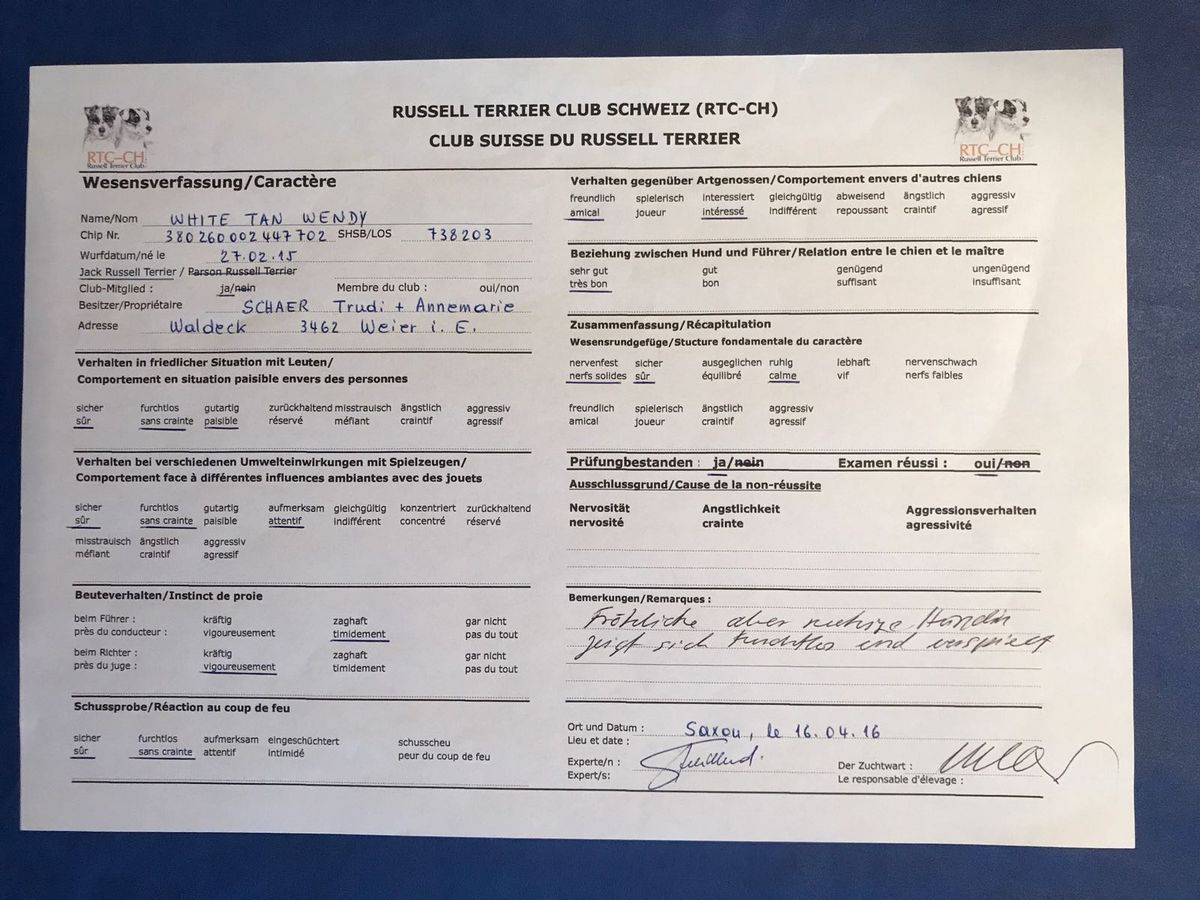 RUSSELL TERRIER CLUB SCHWEIZ (RTC-CH)
CLUB SUISSE DU RUSSELL TERRIER
RTC-CH
Russell Terrier Club
RTC-CH
Russell Terrier Club
Wesensverfassung/Caractère
Name/Nom WHITE TAN WENDY
Chip Nr. 380260002447702 SHSB/LOS 738203
Wurfdatum/né le 27.02.15
Jack Russell Terrier / Parson Russell Terrier
Club-Mitglied : ja/nein Membre du club : oui/non
Besitzer/Propriétaire SCHAER Trudi + Annemarie
Adresse Waldeck 3462 Weier i. E.
Verhalten in friedlicher Situation mit Leuten/
Comportement en situation paisible envers des personnes
sicher furchtlos gutartig zurückhaltend misstrauisch ängstlich aggressiv
sûr sans crainte paisible réservé méfiant craintif agressif
Verhalten bei verschiedenen Umwelteinwirkungen mit Spielzeugen/
Comportement face à différentes influences ambiantes avec des jouets
sicher furchtlos gutartig aufmerksam gleichgültig konzentriert zurückhaltend
sûr sans crainte paisible attentif indifférent concentré réservé
misstrauisch ängstlich aggressiv
méfiant craintif agressif
Beuteverhalten/Instinct de proie
beim Führer : kräftig zaghaft gar nicht
près du conducteur : vigoureusement timidement pas du tout
beim Richter : kräftig zaghaft gar nicht
près du juge : vigoureusement timidement pas du tout
Schussprobe/Réaction au coup de feu
sicher furchtlos aufmerksam eingeschüchtert schusscheu
sûr sans crainte attentif intimidé peur du coup de feu
Verhalten gegenüber Artgenossen/Comportement envers d'autres chiens
freundlich spielerisch interessiert gleichgültig abweisend ängstlich aggressiv
amical joueur intéressé indifférent repoussant craintif agressif
Beziehung zwischen Hund und Führer/Relation entre le chien et le maître
sehr gut gut genügend ungenügend
très bon bon suffisant insuffisant
Zusammenfassung/Récapitulation
Wesensrundgefüge/Stucture fondamentale du caractère
nervenfest sicher ausgeglichen ruhig lebhaft nervenschwach
nerfs solides sûr équilibré calme vif nerfs faibles
freundlich spielerisch ängstlich aggressiv
amical joueur craintif agressif
Prüfungbestanden : ja/nein Examen réussi : oui/non
Ausschlussgrund/Cause de la non-réussite
Nervosität Angstlichkeit Aggressionsverhalten
nervosité crainte agressivité
Bemerkungen/Remarques :
Fröhliche aber ruhige Hündin
zeigt sich furchtlos und verspielt
Ort und Datum : Saxon, le 16.04.16
Lieu et date :
Experte/n :
Expert/s :
Der Zuchtwart :
Le responsable d'élevage :